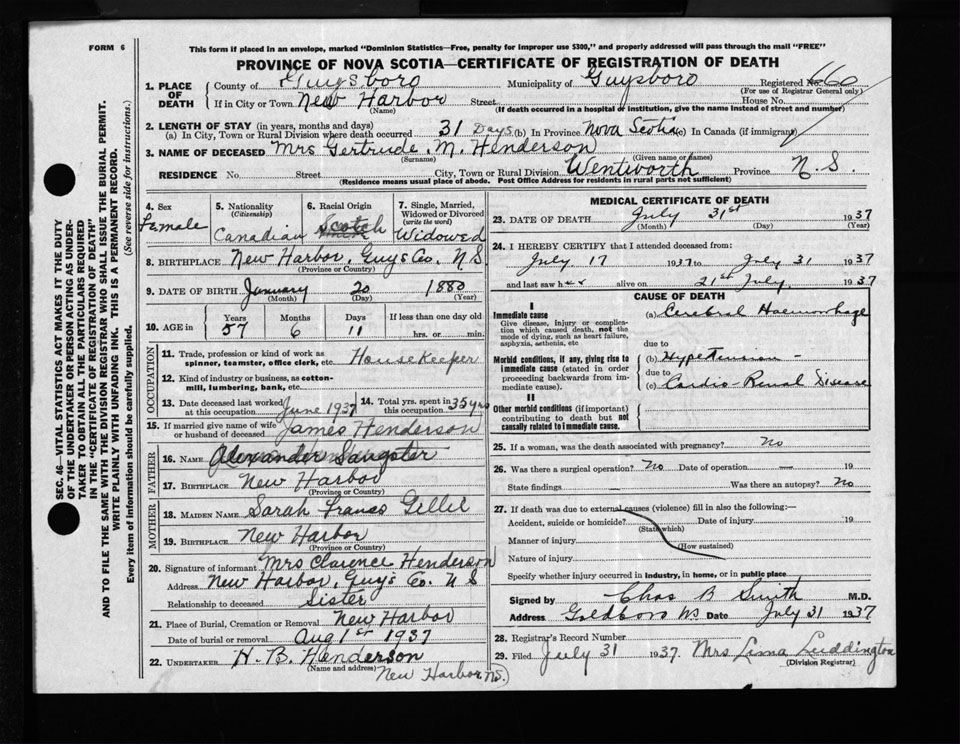 FORM 6
This form if placed in an envelope, marked "Dominion Statistics—Free, penalty for improper use $300," and properly addressed will pass through the mail "FREE"
PROVINCE OF NOVA SCOTIA—CERTIFICATE OF REGISTRATION OF DEATH
SEC. 46—VITAL STATISTICS ACT MAKES IT THE DUTY
OF THE UNDERTAKER OR PERSON ACTING AS UNDER-
TAKER TO OBTAIN ALL THE PARTICULARS REQUIRED
IN THE "CERTIFICATE OF REGISTRATION OF DEATH"
AND TO FILE THE SAME WITH THE DIVISION REGISTRAR WHO SHALL ISSUE THE BURIAL PERMIT.
WRITE PLAINLY WITH UNFADING INK. THIS IS A PERMANENT RECORD.
Every item of information should be carefully supplied. (See reverse side for instructions.)
1. PLACE OF DEATH County of Guysboro Municipality of Guysboro Registered No. 660
(For use of Registrar General only)
If in City or Town New Harbor Street House No.
(Name) (If death occurred in a hospital or institution, give the name instead of street and number)
2. LENGTH OF STAY (in years, months and days)
(a) In City, Town or Rural Division where death occurred 31 Days (b) In Province Nova Scotia (c) In Canada (if immigrant)
3. NAME OF DECEASED Mrs Gertrude. M. Henderson
(Surname) (Given name or names)
RESIDENCE No. Street City, Town or Rural Division Wentworth Province N.S.
(Residence means usual place of abode. Post Office Address for residents in rural parts not sufficient)
4. Sex Female
5. Nationality (Citizenship) Canadian
6. Racial Origin Scotch
7. Single, Married, Widowed or Divorced (write the word) Widowed
8. BIRTHPLACE New Harbor, Guys Co. N.S.
(Province or Country)
9. DATE OF BIRTH January 20 1880
(Month) (Day) (Year)
10. AGE in Years 57 Months 6 Days 11 If less than one day old hrs. or min.
OCCUPATION
11. Trade, profession or kind of work as spinner, teamster, office clerk, etc. Housekeeper
12. Kind of industry or business, as cotton-mill, lumbering, bank, etc.
13. Date deceased last worked at this occupation June 1937 14. Total yrs. spent in this occupation 35 yrs
15. If married give name of wife or husband of deceased James Henderson
FATHER
16. NAME Alexander Sangster
17. BIRTHPLACE New Harbor
(Province or Country)
MOTHER
18. MAIDEN NAME Sarah
19. BIRTHPLACE New Harbor
(Province or Country)
20. Signature of informant Mrs Clarence Henderson
Address New Harbor, Guys Co. N S
Relationship to deceased Sister
21. Place of Burial, Cremation or Removal New Harbor
Date of burial or removal Aug 1st 1937
22. UNDERTAKER H. B. Henderson
(Name and address)
New Harbor NS.
MEDICAL CERTIFICATE OF DEATH
23. DATE OF DEATH July 31st 1937
(Month) (Day) (Year)
24. I HEREBY CERTIFY that I attended deceased from:
July 17 1937 to July 31 1937
and last saw her alive on 21st July, 1937
CAUSE OF DEATH
I
Immediate cause (a) Cerebral Haemorrhage
Give disease, injury or complication which caused death, not the mode of dying, such as heart failure, asphyxia, asthenia, etc
due to
Morbid conditions, if any, giving rise to immediate cause (stated in order proceeding backwards from immediate cause). (b) Hypertension -
due to
(c) Cardio-Renal Disease
II
Other morbid conditions (if important) contributing to death but not causally related to immediate cause.
25. If a woman, was the death associated with pregnancy? No
26. Was there a surgical operation? No Date of operation — 19
State findings — Was there an autopsy? No
27. If death was due to external causes (violence) fill in also the following:—
Accident, suicide or homicide? Date of injury 19
(State which)
Manner of injury
(How sustained)
Nature of injury
Specify whether injury occurred in industry, in home, or in public place
Signed by Chas B Smith M.D.
Address Goldboro NS Date July 31 1937
28. Registrar's Record Number
29. Filed July 31 1937 Mrs Lima Luddington
(Division Registrar)